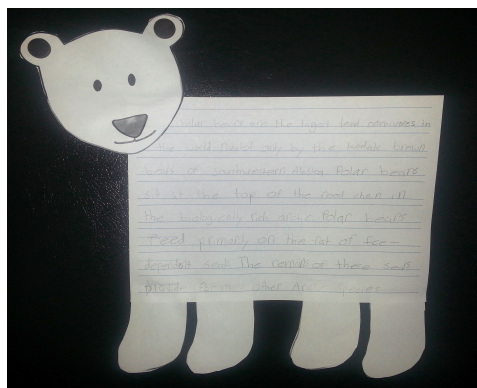 Polar bears are the largest land carnivores in
the world rivaled only by the kodiak brown
bears of southwestern Alaska Polar bears
sit at the top of the food chain in
the biologically rich arctic Polar bears
feed primarily on the fat of ice-
dependent seals The remains of these seals
provide food other Arctic